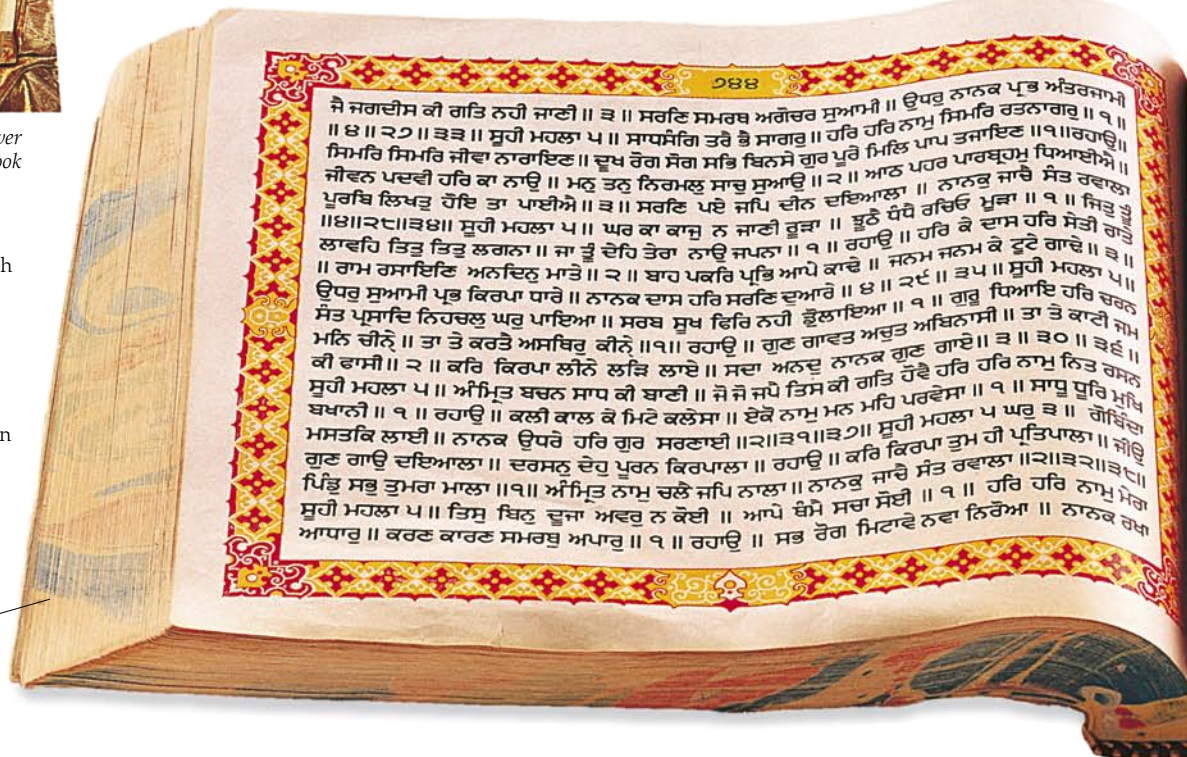 ver
ook
h
n
੭੪੪
ਜੈ ਜਗਦੀਸ ਕੀ ਗਤਿ ਨਹੀ ਜਾਣੀ ॥ ੩ ॥ ਸਰਣਿ ਸਮਰਥ ਅਗੋਚਰ ਸੁਆਮੀ ॥ ਉਧਰੁ ਨਾਨਕ ਪ੍ਰਭ ਅੰਤਰਜਾਮੀ
॥ ੪ ॥ ੨੭ ॥ ੩੩ ॥ ਸੂਹੀ ਮਹਲਾ ੫ ॥ ਸਾਧਸੰਗਿ ਤਰੈ ਭੈ ਸਾਗਰੁ ॥ ਹਰਿ ਹਰਿ ਨਾਮੁ ਸਿਮਰਿ ਰਤਨਾਗਰੁ ॥ ੧ ॥
ਸਿਮਰਿ ਸਿਮਰਿ ਜੀਵਾ ਨਾਰਾਇਣ ॥ ਦੂਖ ਰੋਗ ਸੋਗ ਸਭਿ ਬਿਨਸੇ ਗੁਰ ਪੂਰੇ ਮਿਲਿ ਪਾਪ ਤਜਾਇਣ ॥੧॥ਰਹਾਉ॥
ਜੀਵਨ ਪਦਵੀ ਹਰਿ ਕਾ ਨਾਉ ॥ ਮਨੁ ਤਨੁ ਨਿਰਮਲੁ ਸਾਚੁ ਸੁਆਉ ॥ ੨ ॥ ਆਠ ਪਹਰ ਪਾਰਬ੍ਰਹਮੁ ਧਿਆਈਐ ॥
ਪੂਰਬਿ ਲਿਖਤੁ ਹੋਇ ਤਾ ਪਾਈਐ ॥ ੩ ॥ ਸਰਣਿ ਪਏ ਜਪਿ ਦੀਨ ਦਇਆਲਾ ॥ ਨਾਨਕੁ ਜਾਚੈ ਸੰਤ ਰਵਾਲਾ
॥੪॥੨੮॥੩੪॥ ਸੂਹੀ ਮਹਲਾ ੫ ॥ ਘਰ ਕਾ ਕਾਜੁ ਨ ਜਾਣੀ ਰੂੜਾ ॥ ਝੂਠੈ ਧੰਧੈ ਰਚਿਓ ਮੂੜਾ ॥ ੧ ॥ ਜਿਤੁ ਤੂੰ
ਲਾਵਹਿ ਤਿਤੁ ਤਿਤੁ ਲਗਨਾ ॥ ਜਾ ਤੂੰ ਦੇਹਿ ਤੇਰਾ ਨਾਉ ਜਪਨਾ ॥ ੧ ॥ ਰਹਾਉ ॥ ਹਰਿ ਕੇ ਦਾਸ ਹਰਿ ਸੇਤੀ ਰਾਤੇ
॥ ਰਾਮ ਰਸਾਇਣਿ ਅਨਦਿਨੁ ਮਾਤੇ ॥ ੨ ॥ ਬਾਹ ਪਕਰਿ ਪ੍ਰਭਿ ਆਪੇ ਕਾਢੇ ॥ ਜਨਮ ਜਨਮ ਕੇ ਟੂਟੇ ਗਾਢੇ ॥ ੩ ॥
ਉਧਰੁ ਸੁਆਮੀ ਪ੍ਰਭ ਕਿਰਪਾ ਧਾਰੇ ॥ ਨਾਨਕ ਦਾਸ ਹਰਿ ਸਰਣਿ ਦੁਆਰੇ ॥ ੪ ॥ ੨੯ ॥ ੩੫ ॥ ਸੂਹੀ ਮਹਲਾ ੫ ॥
ਸੰਤ ਪ੍ਰਸਾਦਿ ਨਿਹਚਲੁ ਘਰੁ ਪਾਇਆ ॥ ਸਰਬ ਸੂਖ ਫਿਰਿ ਨਹੀ ਡੋੁਲਾਇਆ ॥ ੧ ॥ ਗੁਰੂ ਧਿਆਇ ਹਰਿ ਚਰਨ
ਮਨਿ ਚੀਨ੍ਹੇ ॥ ਤਾ ਤੇ ਕਰਤੈ ਅਸਥਿਰੁ ਕੀਨ੍ਹੇ ॥੧॥ ਰਹਾਉ ॥ ਗੁਣ ਗਾਵਤ ਅਚੁਤ ਅਬਿਨਾਸੀ ॥ ਤਾ ਤੇ ਕਾਟੀ ਜਮ
ਕੀ ਫਾਸੀ ॥ ੨ ॥ ਕਰਿ ਕਿਰਪਾ ਲੀਨੇ ਲੜਿ ਲਾਏ ॥ ਸਦਾ ਅਨਦੁ ਨਾਨਕ ਗੁਣ ਗਾਏ ॥ ੩ ॥ ੩੦ ॥ ੩੬ ॥
ਸੂਹੀ ਮਹਲਾ ੫ ॥ ਅੰਮ੍ਰਿਤ ਬਚਨ ਸਾਧ ਕੀ ਬਾਣੀ ॥ ਜੋ ਜੋ ਜਪੈ ਤਿਸ ਕੀ ਗਤਿ ਹੋਵੈ ਹਰਿ ਹਰਿ ਨਾਮੁ ਨਿਤ ਰਸਨ
ਬਖਾਨੀ ॥ ੧ ॥ ਰਹਾਉ ॥ ਕਲੀ ਕਾਲ ਕੇ ਮਿਟੇ ਕਲੇਸਾ ॥ ਏਕੋ ਨਾਮੁ ਮਨ ਮਹਿ ਪਰਵੇਸਾ ॥ ੧ ॥ ਸਾਧੂ ਧੂਰਿ ਮੁਖਿ
ਮਸਤਕਿ ਲਾਈ ॥ ਨਾਨਕ ਉਧਰੇ ਹਰਿ ਗੁਰ ਸਰਣਾਈ ॥੨॥੩੧॥੩੭॥ ਸੂਹੀ ਮਹਲਾ ੫ ਘਰੁ ੩ ॥ ਗੋਬਿੰਦਾ
ਗੁਣ ਗਾਉ ਦਇਆਲਾ ॥ ਦਰਸਨੁ ਦੇਹੁ ਪੂਰਨ ਕਿਰਪਾਲਾ ॥ ਰਹਾਉ ॥ ਕਰਿ ਕਿਰਪਾ ਤੁਮ ਹੀ ਪ੍ਰਤਿਪਾਲਾ ॥ ਜੀਉ
ਪਿੰਡੁ ਸਭੁ ਤੁਮਰਾ ਮਾਲਾ ॥੧॥ ਅੰਮ੍ਰਿਤ ਨਾਮੁ ਚਲੈ ਜਪਿ ਨਾਲਾ ॥ ਨਾਨਕੁ ਜਾਚੈ ਸੰਤ ਰਵਾਲਾ ॥੨॥੩੨॥੩੮॥
ਸੂਹੀ ਮਹਲਾ ੫ ॥ ਤਿਸੁ ਬਿਨੁ ਦੂਜਾ ਅਵਰੁ ਨ ਕੋਈ ॥ ਆਪੇ ਥੰਮੈ ਸਚਾ ਸੋਈ ॥ ੧ ॥ ਹਰਿ ਹਰਿ ਨਾਮੁ ਮੇਰਾ
ਆਧਾਰੁ ॥ ਕਰਣ ਕਾਰਣ ਸਮਰਥੁ ਅਪਾਰੁ ॥ ੧ ॥ ਰਹਾਉ ॥ ਸਭ ਰੋਗ ਮਿਟਾਵੇ ਨਵਾ ਨਿਰੋਆ ॥ ਨਾਨਕ ਰਖਾ